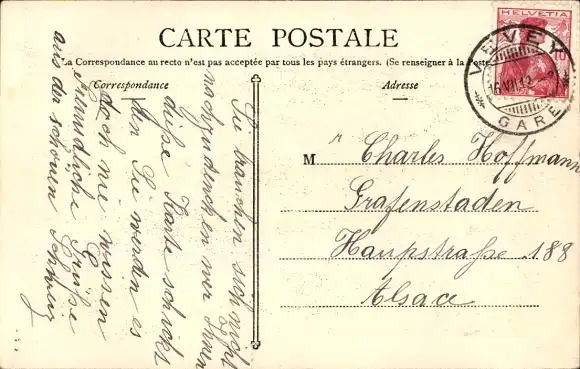 CARTE POSTALE
La Correspondance au recto n'est pas acceptée par tous les pays étrangers. (Se renseigner à la Poste
Correspondance
Adresse
HELVETIA
10
VEVEY
16.VII.12
GARE
Sie brauchen sich nicht
nachzudenken wer Ihnen
diese Karte schickt
den Sie werden es
doch nie wissen
Freundliche Grüße
aus der schönen Schweiz
M r Charles Hoffmann
Grafenstaden
Haupstraße 188
Alsace